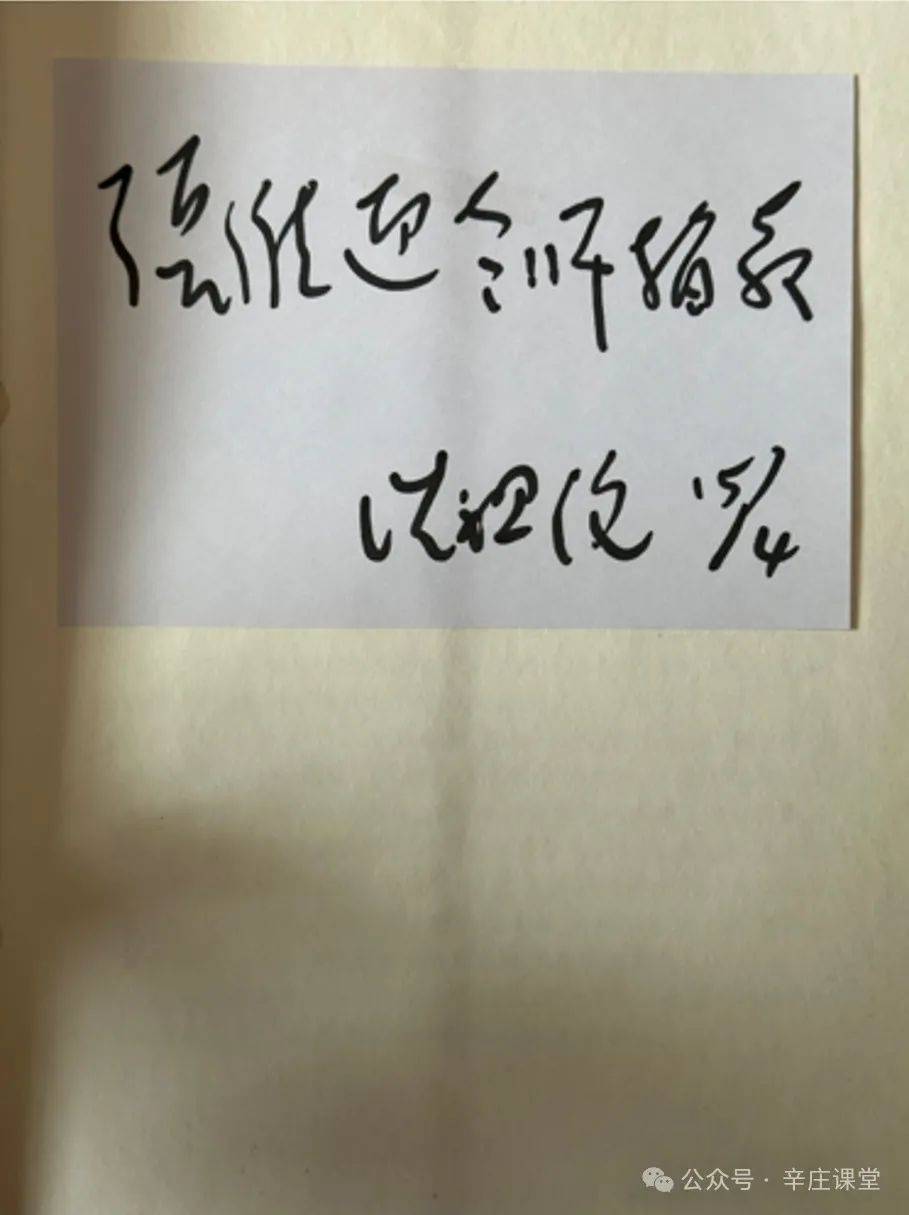 张维迎老师指教
沈祖伦 15/4
公众号 · 辛庄课堂